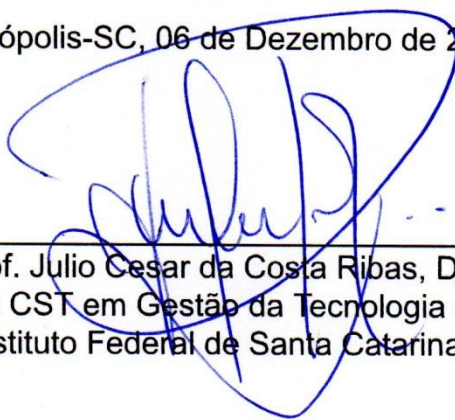 ópolis-SC, 06 de Dezembro de 2
of. Julio Cesar da Costa Ribas, D
CST em Gestão da Tecnologia
stituto Federal de Santa Catarina